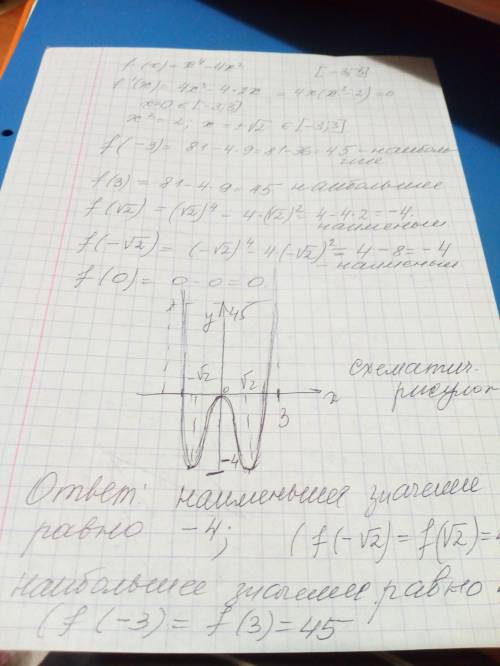 f(x) = x⁴ - 4x² [-3;3]
f'(x) = 4x³ - 4·2x = 4x(x²-2) = 0
x=0 ∈ [-3;3]
x² = 2; x = ±√2 ∈ [-3;3]
f(-3) = 81 - 4·9 = 81 - 36 = 45 - наиболь
шее
f(3) = 81 - 4·9 = 45 наибольшее
f(√2) = (√2)⁴ - 4·(√2)² = 4 - 4·2 = -4.
наименьш
f(-√2) = (-√2)⁴ - 4(-√2)² = 4 - 8 = -4
- наименьш
f(0) = 0 - 0 = 0
y 45
-√2 0 √2
x
3
-4
схематич.
рисунок
Ответ: наименьшее значение
равно -4; (f(-√2) = f(√2) =
наибольшее значение равно
(f(-3) = f(3) = 45